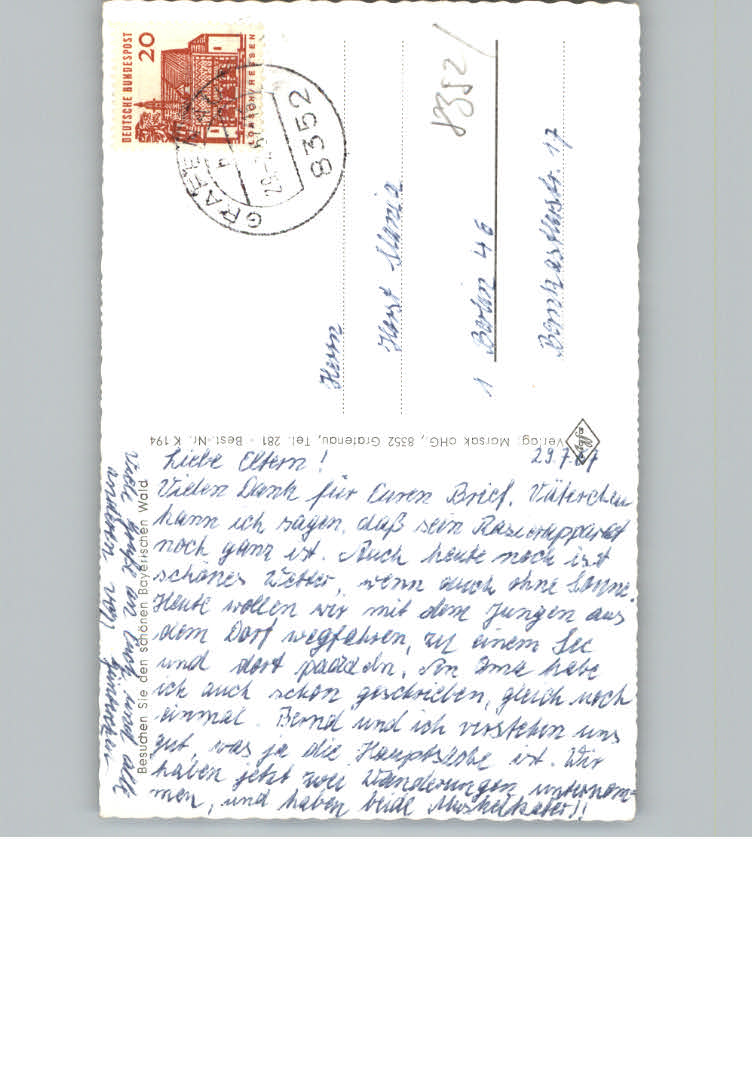 DEUTSCHE BUNDESPOST
20
LORSCH/HESSEN
GRAFENAU
29.-7.67
8352
8352
Herrn
Horst
1 Berlin 46
Bernkastlerstr. 17
Verlag: Marsak OHG, 8352 Grafenau, Tel. 281 - Best.-Nr. K 194
Agfa
Besuchen Sie den schönen Bayerischen Wald
29.7.67
Liebe Eltern!
Vielen Dank für Euren Brief. Väterchen
kann ich sagen, daß sein Rasierapparat
noch ganz ist. Auch heute noch ist
schönes Wetter, wenn auch ohne Sonne.
Heute wollen wir mit dem Jungen aus
dem Dorf wegfahren, zu einem See
und dort paddeln. An Oma habe
ich auch schon geschrieben, gleich noch
einmal. Bernd und ich verstehen uns
gut, was ja die Hauptsache ist. Wir
haben jetzt zwei Wanderungen unternom-
men, und haben beide Muskelkater!!
Viele Grüße an Euch und alle
anderen von